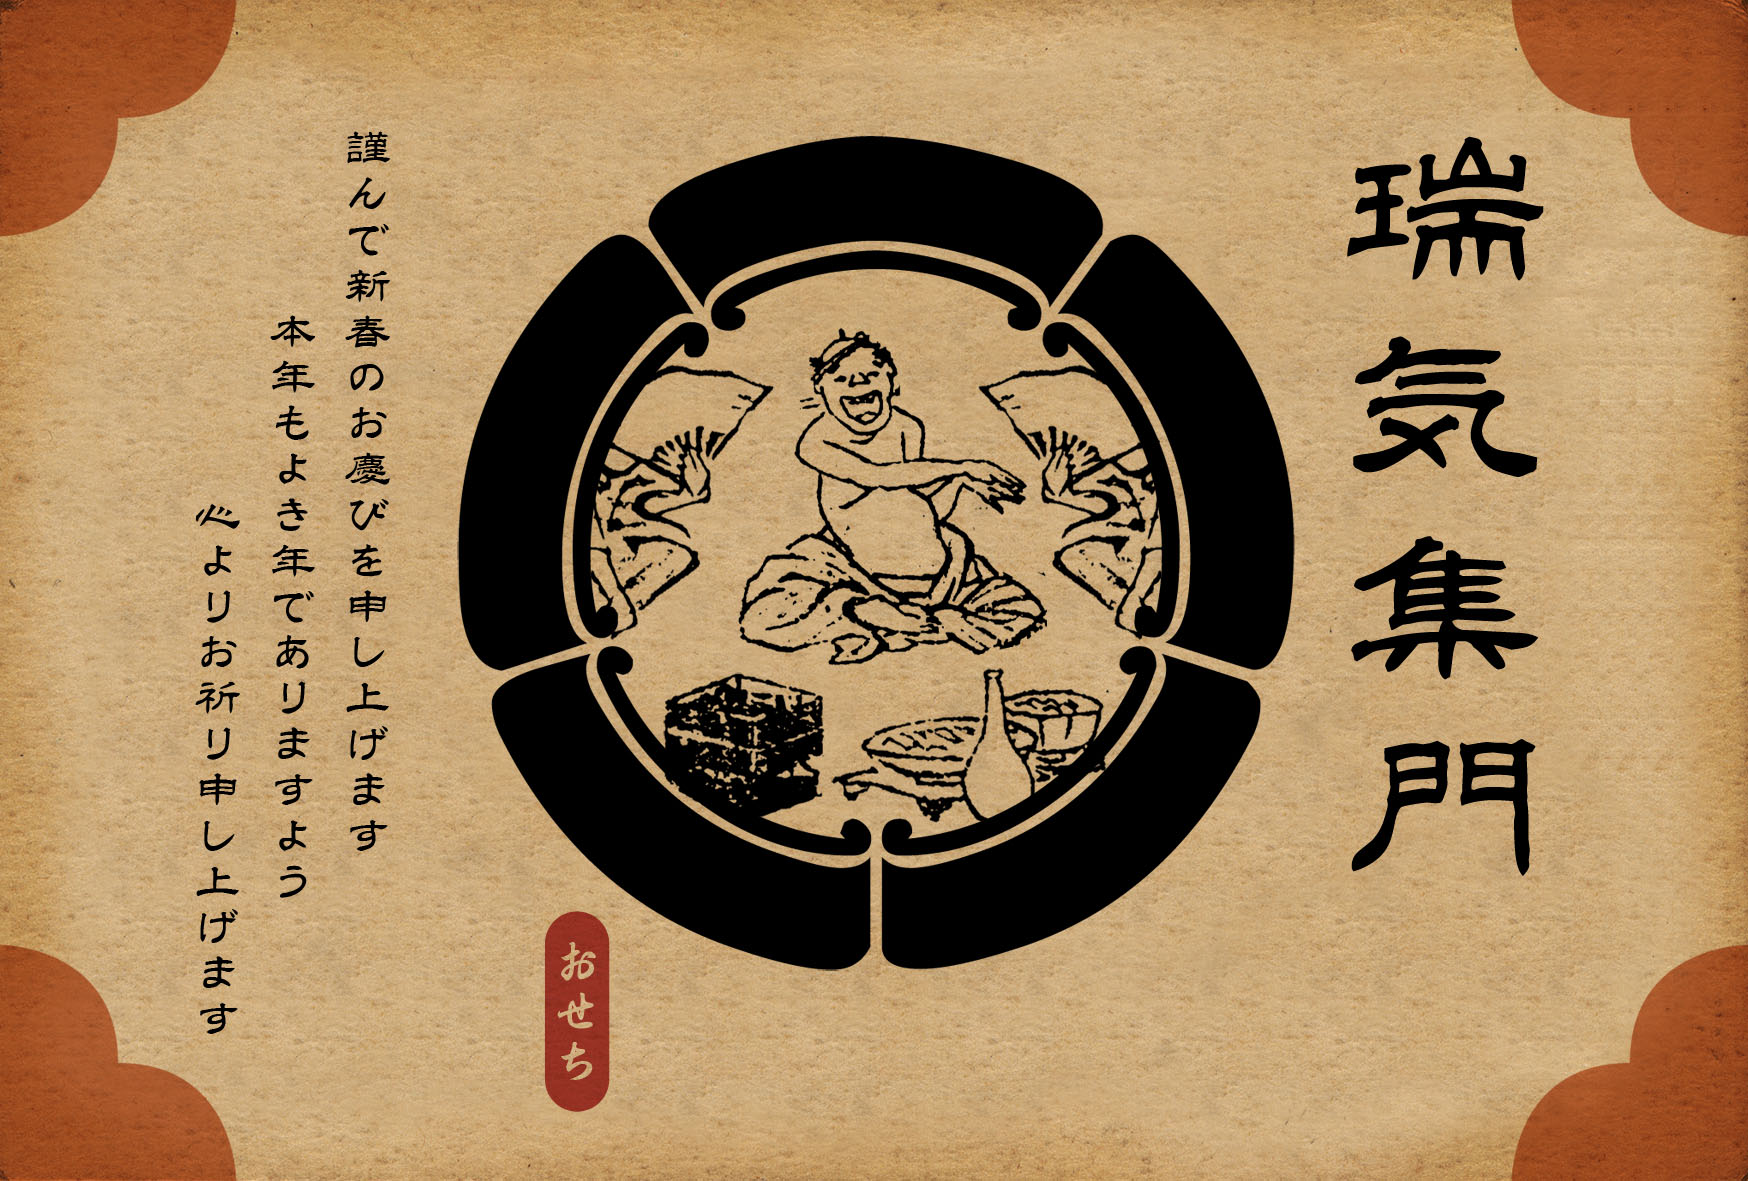 瑞気集門
謹んで新春のお慶びを申し上げます
本年もよき年でありますよう
心よりお祈り申し上げます
おせち